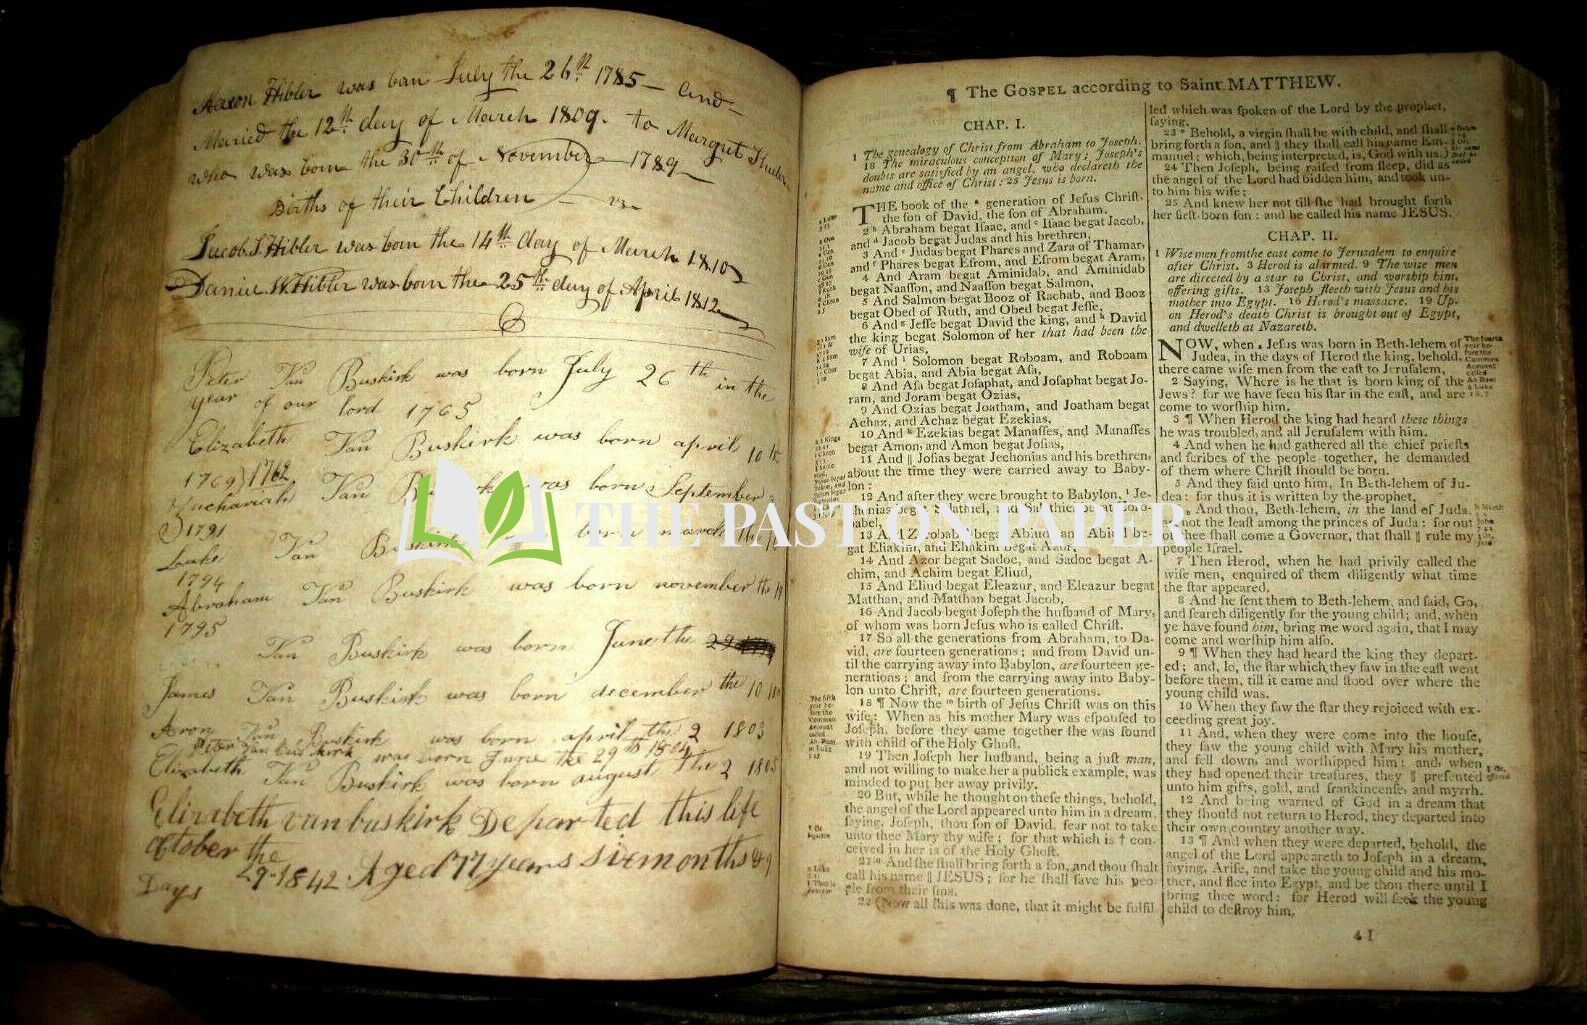 Aaron Hibler was born July the 26th 1785 — and
Maried the 12th day of March 1809. to Margret
who was born the 30th of November — 1789 —
Births of their Children
Jacob S. Hibler was born the 14th day of March 1810
Daniel W. Hibler was born the 25th day of April 1812
Peter Van Buskirk was born July 26th in the
year of our lord 1765
Elizabeth Van Buskirk was born april 10th
1769) 1762
Zachariah Van Buskirk was born September
1791
Louke Van Buskirk born march the
1794
Abraham Van Buskirk was born november the
1795
Van Buskirk was born June the 29
James Van Buskirk was born december the 10
Aron Van Buskirk was born april the 2 1803
Peter Van Buskirk was born June the 29th 1804
Elizabeth Van Buskirk was born august the 2 1805
Elizabeth van buskirk Departed this life
October the
29-1842 Aged 77 years six months & 9
Days
THE PAST ON PAPER
¶ The GOSPEL according to Saint MATTHEW.
CHAP. I.
1 The genealogy of Christ from Abraham to Joseph.
18 The miraculous conception of Mary: Joseph's
doubts are satisfied by an angel, who declareth the
name and office of Christ: 25 Jesus is born.
THE book of the generation of Jeſus Chriſt,
the ſon of David, the ſon of Abraham.
2 Abraham begat Iſaac, and Iſaac begat Jacob,
and Jacob begat Judas and his brethren,
3 And Judas begat Phares and Zara of Thamar,
and Phares begat Eſrom, and Eſrom begat Aram,
4 And Aram begat Aminidab, and Aminidab
begat Naaſſon, and Naaſſon begat Salmon,
5 And Salmon begat Booz of Rachab, and Booz
begat Obed of Ruth, and Obed begat Jeſſe,
6 And Jeſſe begat David the king, and David
the king begat Solomon of her that had been the
wife of Urias,
7 And Solomon begat Roboam, and Roboam
begat Abia, and Abia begat Aſa,
8 And Aſa begat Joſaphat, and Joſaphat begat Jo-
ram, and Joram begat Ozias,
9 And Ozias begat Joatham, and Joatham begat
Achaz, and Achaz begat Ezekias,
10 And Ezekias begat Manaſſes, and Manaſſes
begat Amon, and Amon begat Joſias,
11 And || Joſias begat Jechonias and his brethren,
about the time they were carried away to Baby-
lon:
12 And after they were brought to Babylon, Je-
13 And
gat Eliakim, and Eliakim begat Azor,
14 And Azor begat Sadoc, and Sadoc begat A-
chim, and Achim begat Eliud,
15 And Eliud begat Eleazur, and Eleazur begat
Matthan, and Matthan begat Jacob,
16 And Jacob begat Joſeph the huſband of Mary,
of whom was born Jeſus who is called Chriſt.
17 So all the generations from Abraham, to Da-
vid, are fourteen generations; and from David un-
til the carrying away into Babylon, are fourteen ge-
nerations; and from the carrying away into Baby-
lon unto Chriſt, are fourteen generations.
18 ¶ Now the birth of Jeſus Chriſt was on this
wiſe: When as his mother Mary was eſpouſed to
Joſeph, before they came together ſhe was found
with child of the Holy Ghoſt.
19 Then Joſeph her huſband, being a juſt man,
and not willing to make her a publick example, was
minded to put her away privily.
20 But, while he thought on theſe things, behold,
the angel of the Lord appeared unto him in a dream,
ſaying, Joſeph, thou ſon of David, fear not to take
unto thee Mary thy wife; for that which is † con-
ceived in her is of the Holy Ghoſt.
21 And ſhe ſhall bring forth a ſon, and thou ſhalt
call his name || JESUS; for he ſhall ſave his peo-
ple from their ſins.
22 (Now all this was done, that it might be fulfil-
led which was ſpoken of the Lord by the prophet,
ſaying,
23 Behold, a virgin ſhall be with child, and ſhall
bring forth a ſon, and || they ſhall call his name Em-
manuel; which, being interpreted, is, God with us.)
24 Then Joſeph, being raiſed from ſleep, did as
the angel of the Lord had bidden him, and took un-
to him his wife;
25 And knew her not till ſhe had brought forth
her firſt-born ſon: and he called his name JESUS.
CHAP. II.
1 Wise men from the east come to Jerusalem to enquire
after Christ. 3 Herod is alarmed. 9 The wise men
are directed by a star to Christ, and worship him,
offering gifts. 13 Joseph fleeth with Jesus and his
mother into Egypt. 16 Herod's massacre. 19 Up-
on Herod's death Christ is brought out of Egypt,
and dwelleth at Nazareth.
NOW, when Jeſus was born in Beth-lehem of
Judea, in the days of Herod the king, behold,
there came wiſe men from the eaſt to Jeruſalem,
2 Saying, Where is he that is born king of the
Jews? for we have ſeen his ſtar in the eaſt, and are
come to worſhip him.
3 ¶ When Herod the king had heard these things
he was troubled, and all Jeruſalem with him.
4 And when he had gathered all the chief prieſts
and ſcribes of the people together, he demanded
of them where Chriſt ſhould be born.
5 And they ſaid unto him, In Beth-lehem of Ju-
dea: for thus it is written by the prophet,
6 And thou, Beth-lehem, in the land of Juda,
not the leaſt among the princes of Juda: for out
of thee ſhall come a Governor, that ſhall || rule my
people Iſrael.
7 Then Herod, when he had privily called the
wiſe men, enquired of them diligently what time
the ſtar appeared.
8 And he ſent them to Beth-lehem, and ſaid, Go,
and ſearch diligently for the young child; and, when
ye have found him, bring me word again, that I may
come and worſhip him alſo.
9 ¶ When they had heard the king they depart-
ed; and, lo, the ſtar which they ſaw in the eaſt went
before them, till it came and ſtood over where the
young child was.
10 When they ſaw the ſtar they rejoiced with ex-
ceeding great joy.
11 And, when they were come into the houſe,
they ſaw the young child with Mary his mother,
and fell down, and worſhipped him: and, when
they had opened their treaſures, they || preſented
unto him gifts, gold, and frankincenſe, and myrrh.
12 And being warned of God in a dream that
they ſhould not return to Herod, they departed into
their own country another way.
13 ¶ And when they were departed, behold, the
angel of the Lord appeareth to Joſeph in a dream,
ſaying, Ariſe, and take the young child and his mo-
ther, and flee into Egypt, and be thou there until I
bring thee word: for Herod will ſeek the young
child to deſtroy him.
4 I